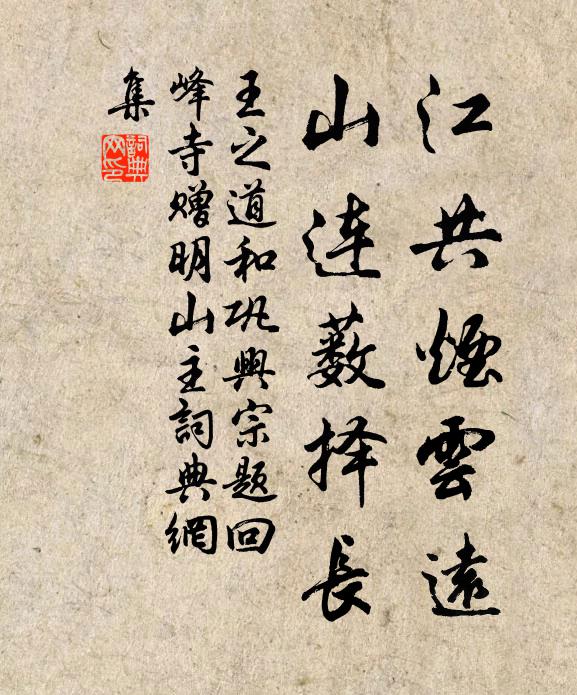 江共煙雲遠
山連薮择長
王之道和巩興宗题回
峰寺赠明山主詞典網
集
詞典
网印